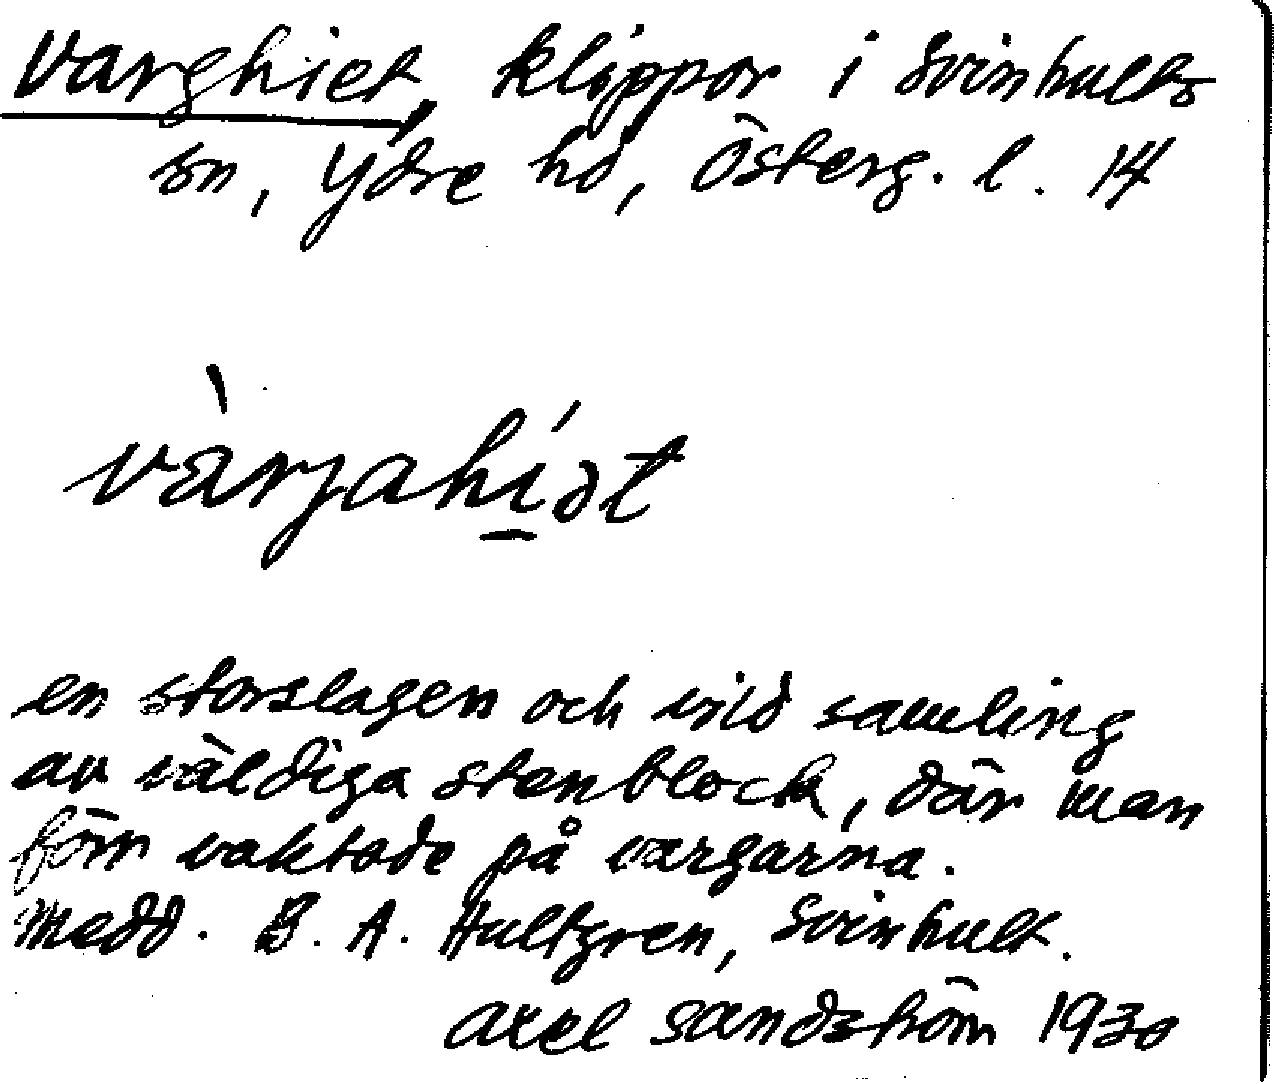 Varghiet, klippor i Svinhults
sn, Ydre hd, Österg. l. 14
vàrjahi̠ət
en storslagen och vild samling
av väldiga stenblock, där man
förr vaktade på vargarna.
Medd. B. A. Hultgren, Svinhult.
Axel Sandström 1930